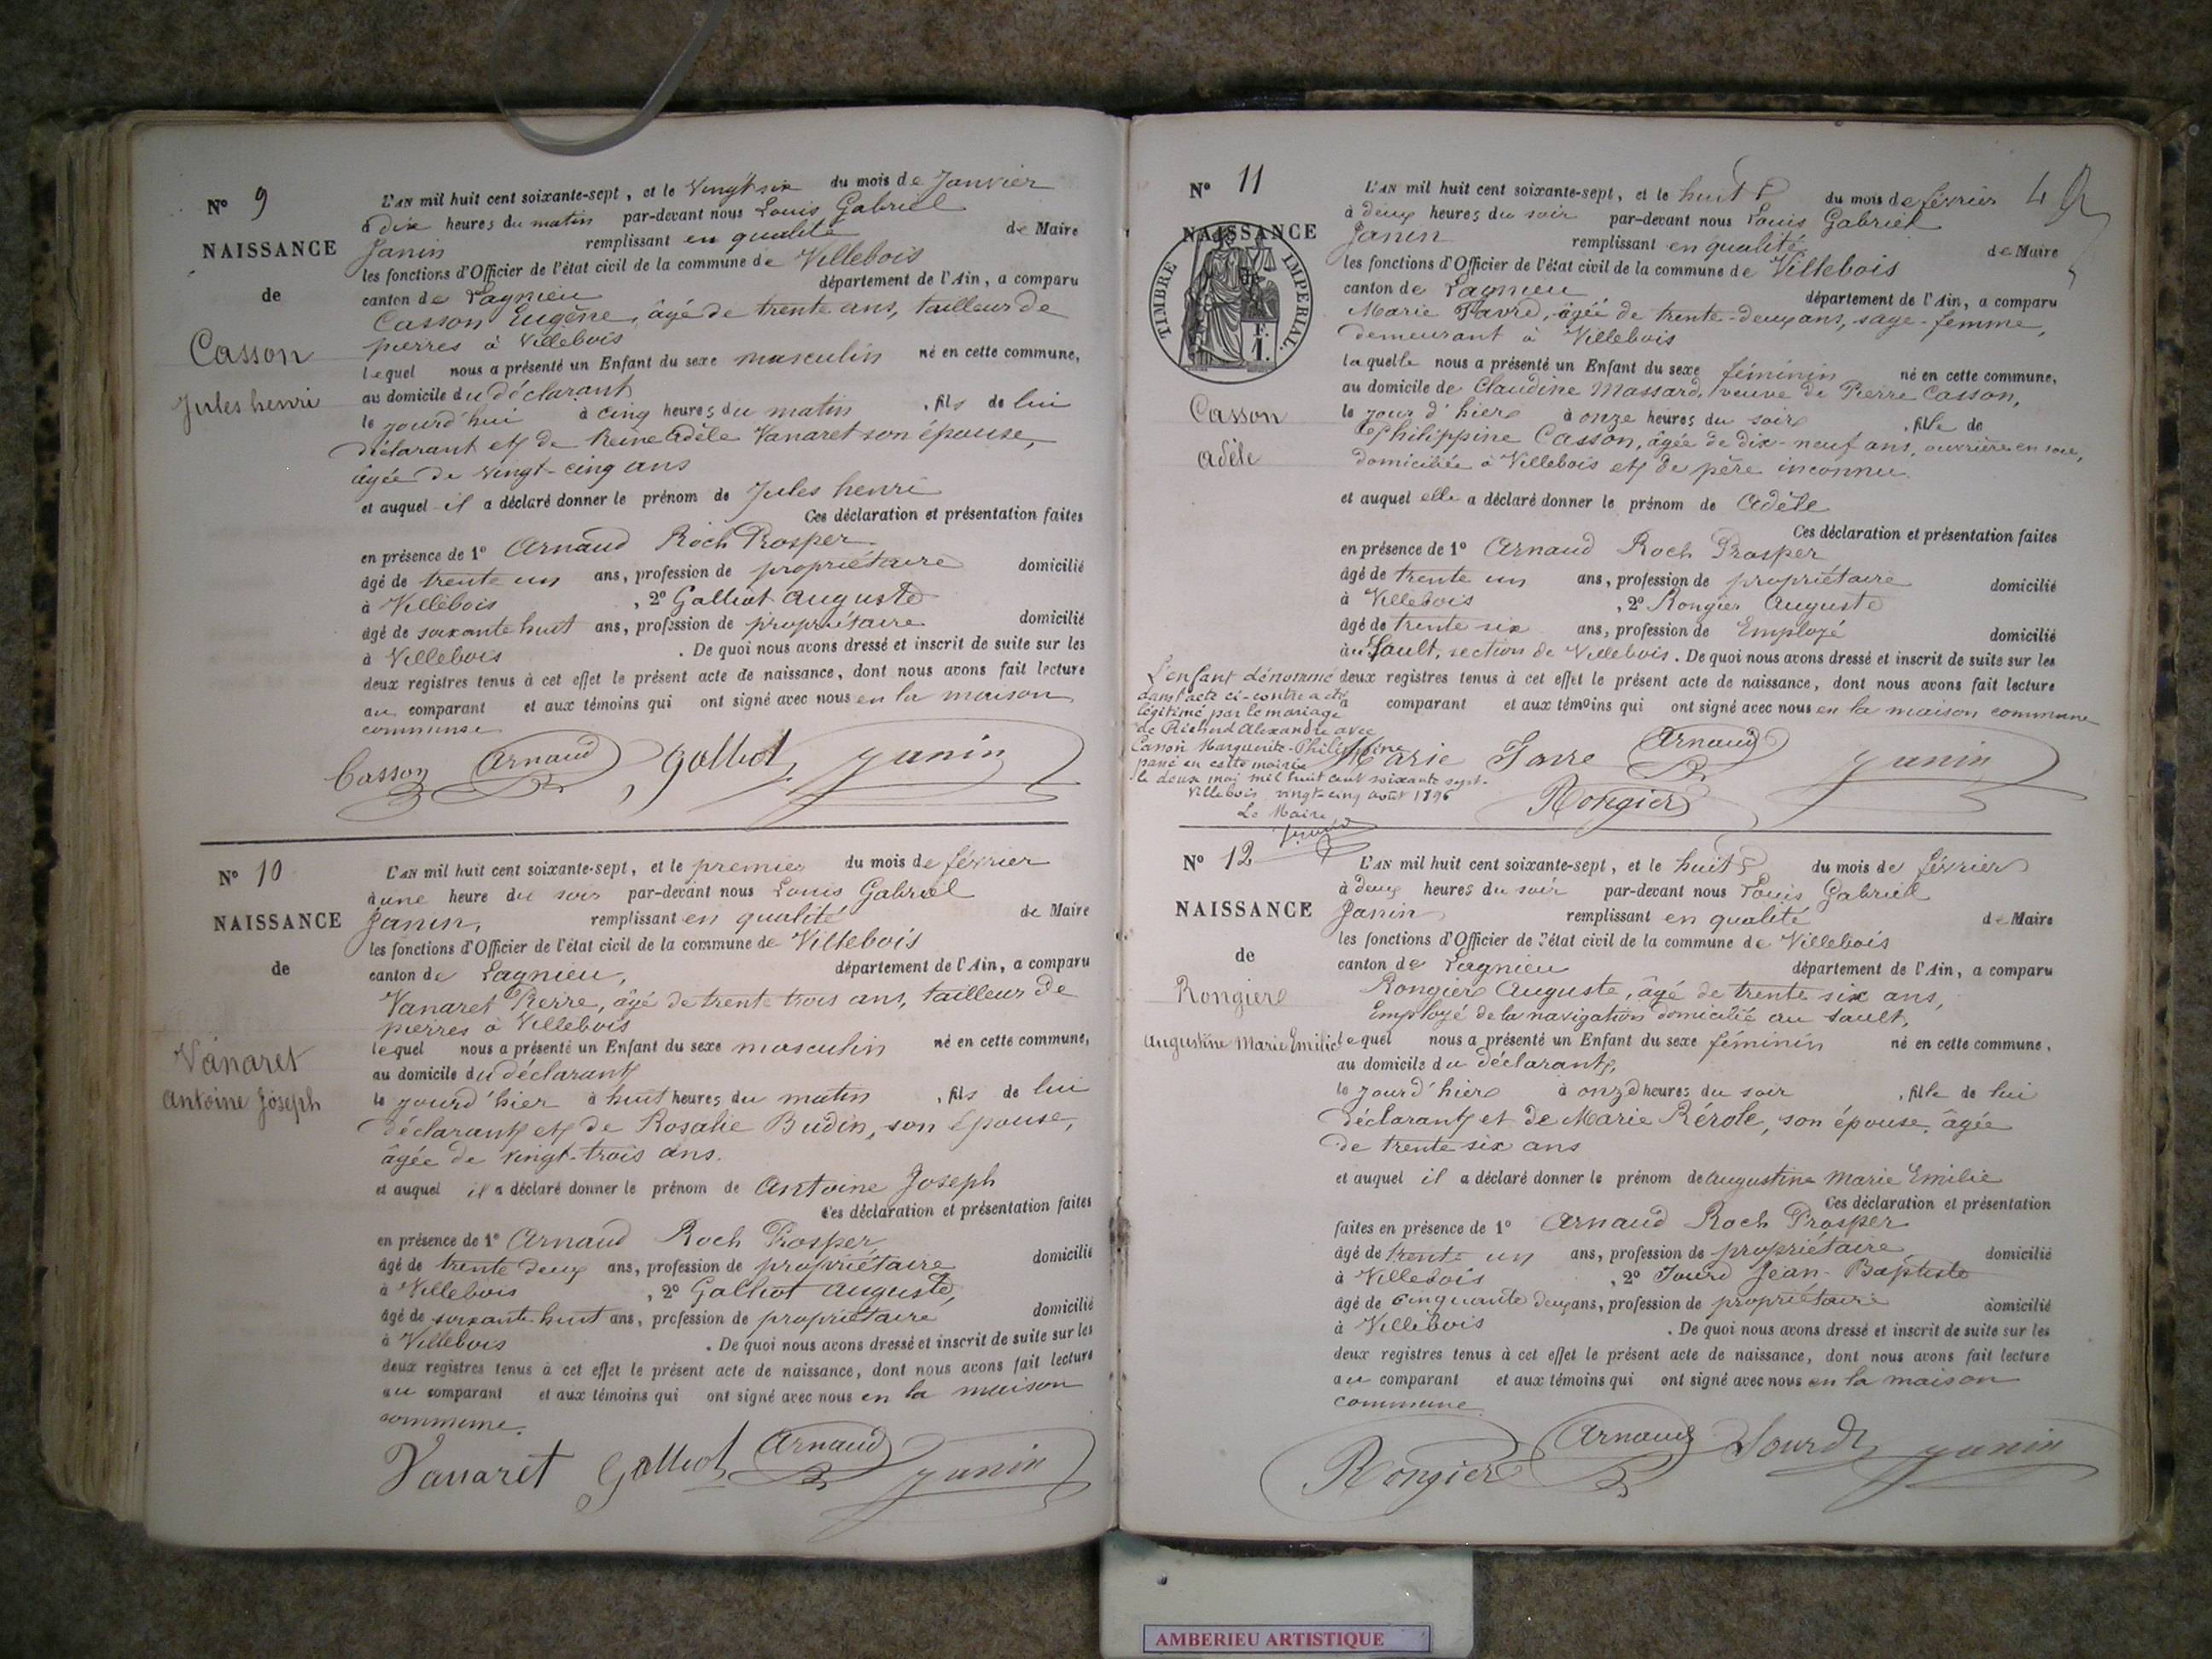 N° 9
NAISSANCE
de
Casson
Jules henri
L'AN mil huit cent soixante-sept, et le Vingt six du mois de Janvier
à dix heures du matin par-devant nous Louis Gabriel
Janin remplissant en qualité de Maire
les fonctions d'Officier de l'état civil de la commune de Villebois
canton de Lagnieu département de l'Ain, a comparu
Casson Eugène, âgé de trente ans, tailleur de
pierres à Villebois
lequel nous a présenté un Enfant du sexe masculin né en cette commune,
au domicile du déclarant
le jourd'hui à cinq heures du matin, fils de lui
déclarant et de Reine Adèle Vanaret son épouse,
âgée de vingt-cinq ans
et auquel il a déclaré donner le prénom de Jules henri
Ces déclaration et présentation faites
en présence de 1° Arnaud Roch Prosper
âgé de trente un ans, profession de propriétaire domicilié
à Villebois, 2° Galliot Auguste
âgé de soixante huit ans, profession de propriétaire domicilié
à Villebois. De quoi nous avons dressé et inscrit de suite sur les
deux registres tenus à cet effet le présent acte de naissance, dont nous avons fait lecture
au comparant et aux témoins qui ont signé avec nous en la maison
commune
Casson Arnaud Galliot Janin
N° 10
NAISSANCE
de
Vanaret
Antoine Joseph
L'AN mil huit cent soixante-sept, et le premier du mois de février
à une heure du soir par-devant nous Louis Gabriel
Janin, remplissant en qualité de Maire
les fonctions d'Officier de l'état civil de la commune de Villebois
canton de Lagnieu, département de l'Ain, a comparu
Vanaret Pierre, âgé de trente trois ans, tailleur de
pierres à Villebois
lequel nous a présenté un Enfant du sexe masculin né en cette commune,
au domicile du déclarant
le jourd'hier à huit heures du matin, fils de lui
déclarant et de Rosalie Budin, son épouse,
âgée de vingt-trois ans.
et auquel il a déclaré donner le prénom de Antoine Joseph
Ces déclaration et présentation faites
en présence de 1° Arnaud Roch Prosper
âgé de trente deux ans, profession de propriétaire domicilié
à Villebois, 2° Galliot Auguste,
âgé de soixante huit ans, profession de propriétaire domicilié
à Villebois. De quoi nous avons dressé et inscrit de suite sur les
deux registres tenus à cet effet le présent acte de naissance, dont nous avons fait lecture
au comparant et aux témoins qui ont signé avec nous en la maison
commune.
Vanaret Galliot Arnaud Janin
4
N° 11
NAISSANCE
TIMBRE IMPERIAL
Casson
Adèle
L'AN mil huit cent soixante-sept, et le huit du mois de février
à deux heures du soir par-devant nous Louis Gabriel
Janin remplissant en qualité de Maire
les fonctions d'Officier de l'état civil de la commune de Villebois
canton de Lagnieu département de l'Ain, a comparu
Marie Favre, âgée de trente-deux ans, sage-femme,
demeurant à Villebois
laquelle nous a présenté un Enfant du sexe féminin né en cette commune,
au domicile de Claudine Massard, veuve de Pierre Casson,
le jour d'hier à onze heures du soir, fille de
Philippine Casson, âgée de dix-neuf ans, ouvrière en soie,
domiciliée à Villebois et de père inconnu
et auquel elle a déclaré donner le prénom de Adèle
Ces déclaration et présentation faites
en présence de 1° Arnaud Roch Prosper
âgé de trente un ans, profession de propriétaire domicilié
à Villebois, 2° Rongier Auguste
âgé de trente six ans, profession de Employé domicilié
au Sault, section de Villebois. De quoi nous avons dressé et inscrit de suite sur les
deux registres tenus à cet effet le présent acte de naissance, dont nous avons fait lecture
a comparant et aux témoins qui ont signé avec nous en la maison commune
L'enfant dénommé
dans l'acte ci-contre a été
légitimé par le mariage
de Richerd Alexandre avec
Casson Marguerite-Philippine
passé en cette mairie
le deux mai mil huit cent soixante sept.
Villebois vingt-cinq août 1896
Le Maire
Marie Favre Arnaud Janin
Rongier
N° 12
NAISSANCE
de
Rongier
Augustine Marie Emilie
L'AN mil huit cent soixante-sept, et le huit du mois de février
à deux heures du soir par-devant nous Louis Gabriel
Janin remplissant en qualité de Maire
les fonctions d'Officier de l'état civil de la commune de Villebois
canton de Lagnieu département de l'Ain, a comparu
Rongier Auguste, âgé de trente six ans,
Employé de la navigation domicilié au Sault,
lequel nous a présenté un Enfant du sexe féminin né en cette commune,
au domicile du déclarant,
le jourd'hier à onze heures du soir, fille de lui
déclarant et de Marie Rérole, son épouse, âgée
de trente six ans
et auquel il a déclaré donner le prénom de Augustine Marie Emilie
Ces déclaration et présentation
faites en présence de 1° Arnaud Roch Prosper
âgé de trente un ans, profession de propriétaire domicilié
à Villebois, 2° Jourd Jean-Baptiste
âgé de cinquante deux ans, profession de propriétaire domicilié
à Villebois. De quoi nous avons dressé et inscrit de suite sur les
deux registres tenus à cet effet le présent acte de naissance, dont nous avons fait lecture
au comparant et aux témoins qui ont signé avec nous en la maison
commune
Rongier Arnaud Jourd Janin
AMBERIEU ARTISTIQUE